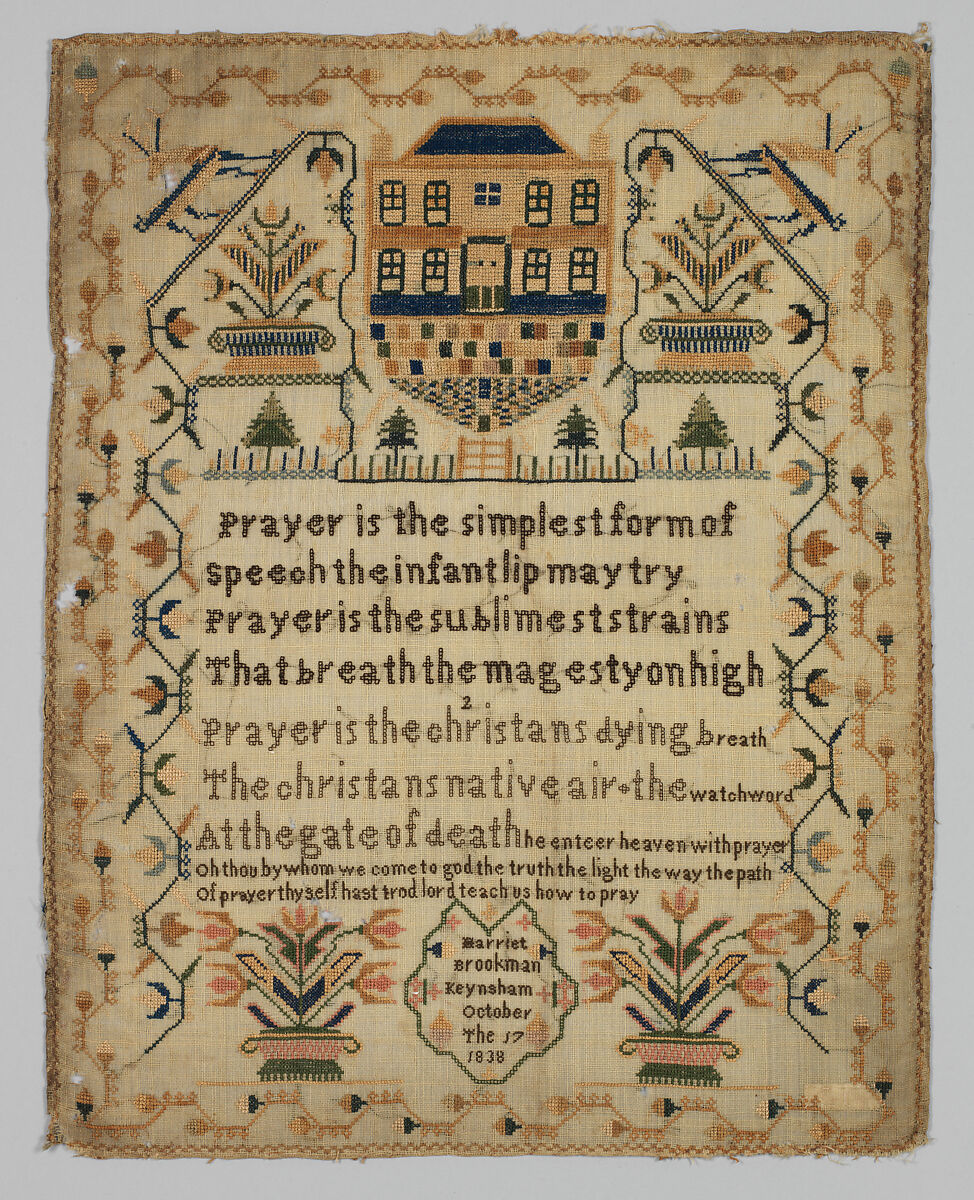 Prayer is the simplest form of
speech the infant lip may try
Prayer is the sublimest strains
That breath the magesty on high
2
Prayer is the christans dying breath
The christans native air the watchword
At the gate of death he enteer heaven with prayer
Oh thou by whom we come to god the truth the light the way the path
Of prayer thyself hast trod lord teach us how to pray
Harriet
Brookman
Keynsham
October
The 17
1838